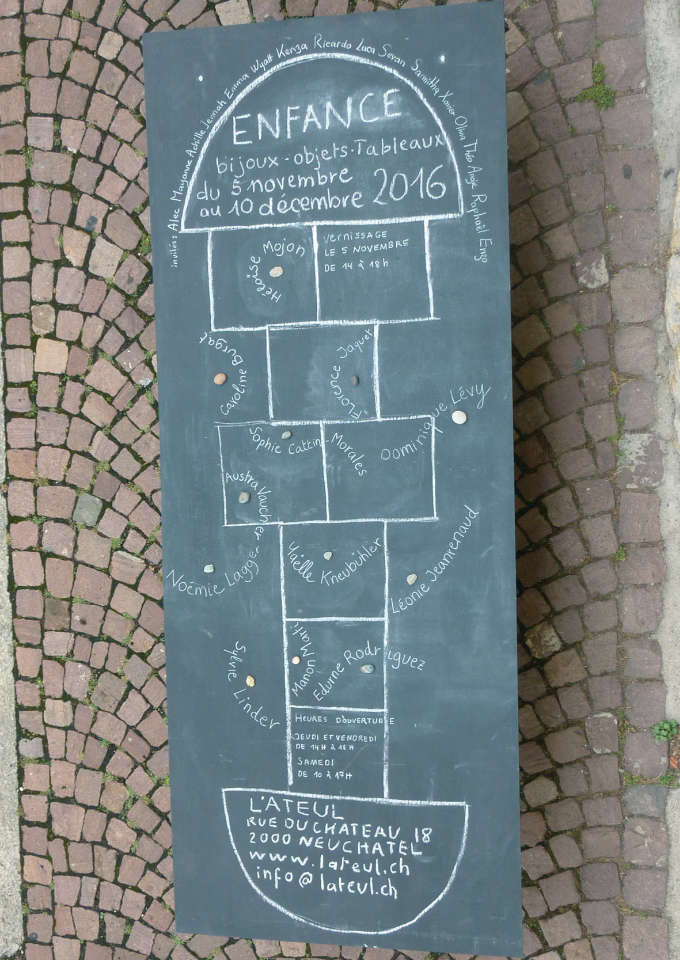 invités: Alec Maryanne Achille Jennah Emma Wyatt Kenza Ricardo Luca Sevan Samitha Xavier Olivia Théo Angie Raphaël Engo
ENFANCE
bijoux - objets - Tableaux
du 5 novembre
au 10 décembre 2016
Héloïse Mojon
VERNISSAGE
LE 5 NOVEMBRE
DE 14 À 18h
Caroline Burgat
Florence Jaquet
Dominique Lévy
Sophie Cattin Morales
Austra Vaucher
Noémie Lagger
Yaëlle Kneubühler
Léonie Jeanrenaud
Sylvie Linder
Manon Marti
Edurne Rodriguez
HEURES D'OUVERTURE
JEUDI ET VENDREDI
DE 14H À 18H
SAMEDI
DE 10 À 17H
L'ATEUL
RUE DU CHATEAU 18
2000 NEUCHATEL
www.lateul.ch
info@lateul.ch